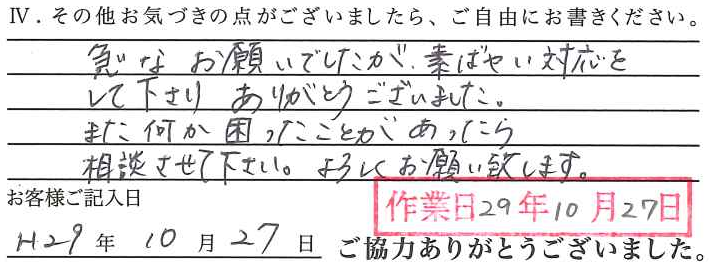 Ⅳ．その他お気づきの点がございましたら、ご自由にお書きください。
急なお願いでしたが、素ばやい対応を
して下さり ありがとうございました。
また何か困ったことがあったら
相談させて下さい。よろしくお願い致します。
お客様ご記入日
作業日29年10月27日
H29年 10月27日 ご協力ありがとうございました。